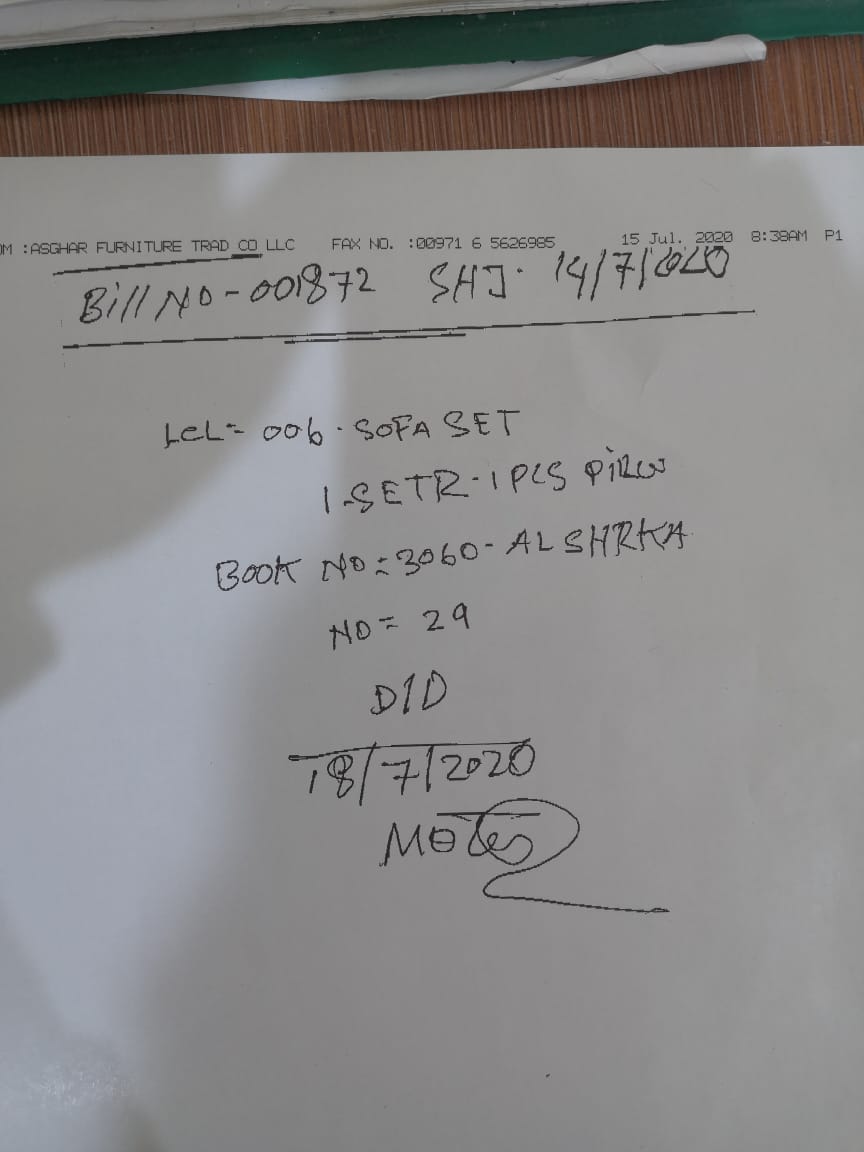 OM :ASGHAR FURNITURE TRAD CO LLC FAX NO. :00971 6 5626985 15 Jul. 2020 8:38AM P1
Bill NO-001872 SHJ. 14/7/2020
LCL= 006. SOFA SET
1-SETR-1 PCS PiLLW
BOOK NO=3060-AL SHRKA
NO= 29
D/D
18/7/2020